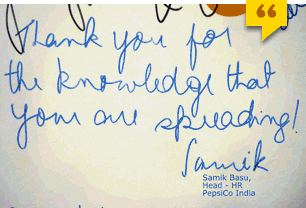 Thank you for
the knowledge that
you are spreading!
Samik
Samik Basu,
Head - HR
PepsiCo India